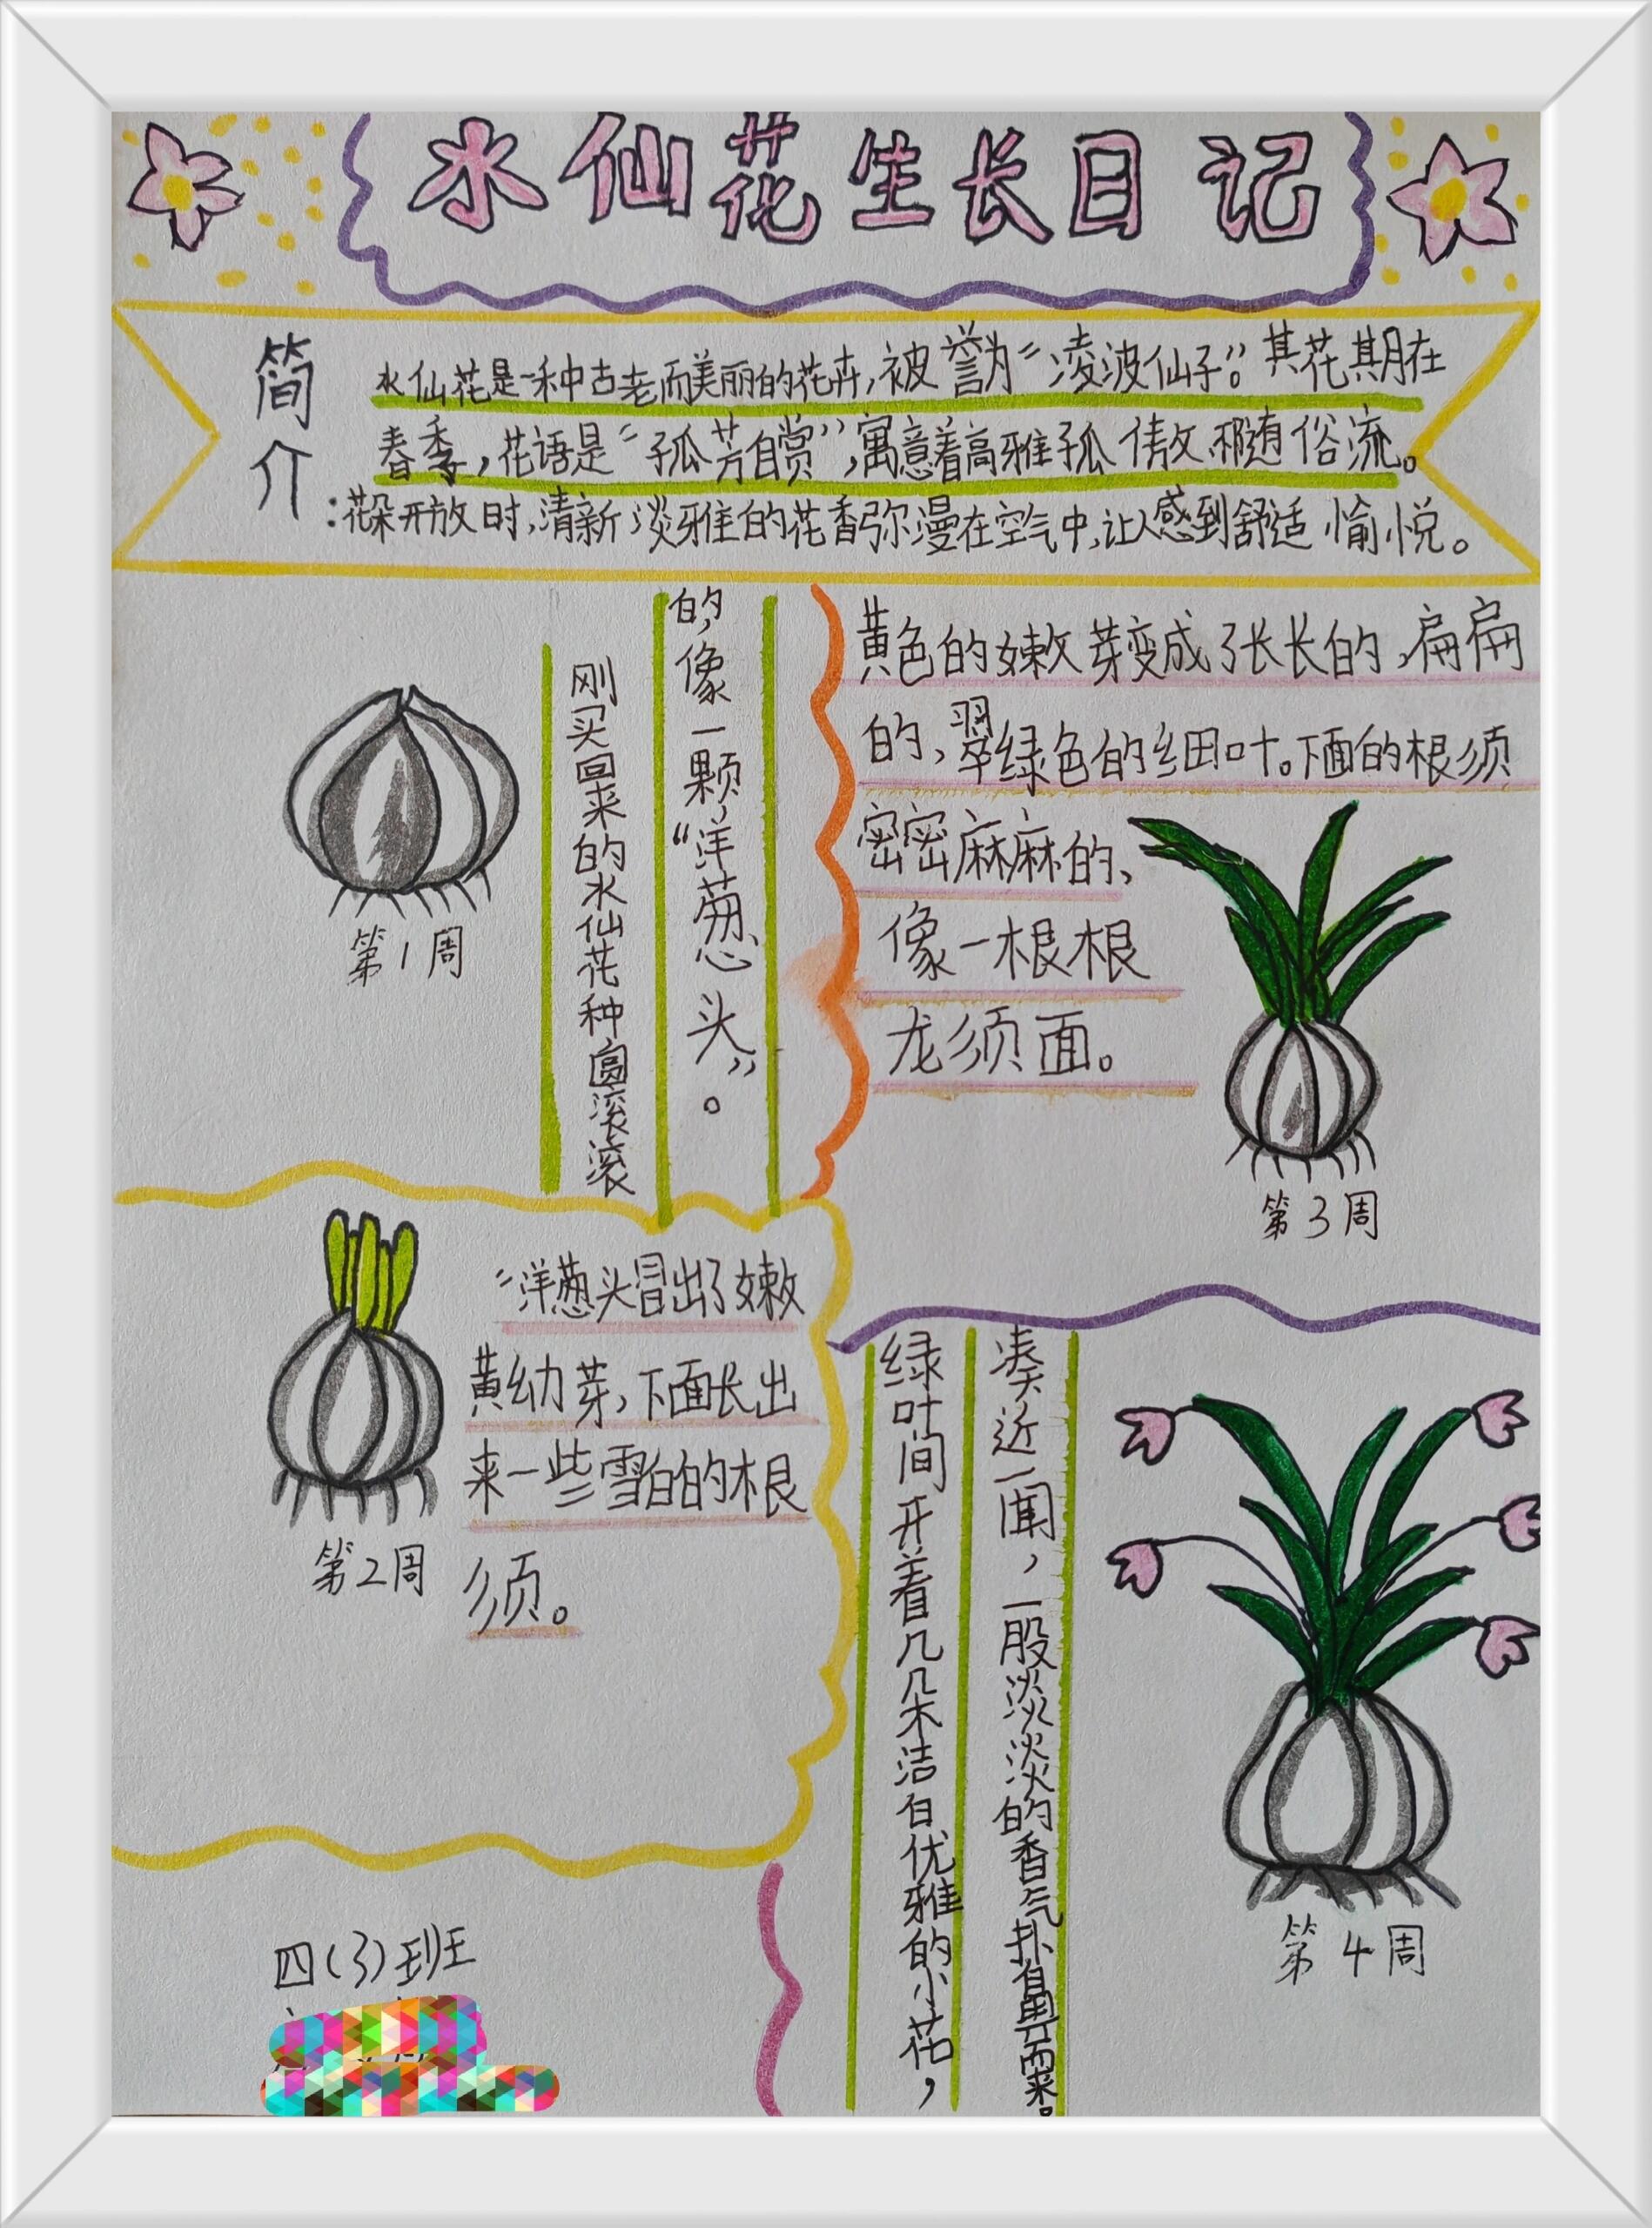 水仙花生长日记
简介:
水仙花是一种古老而美丽的花卉,被誉为“凌波仙子”。其花期在
春季,花语是“孤芳自赏”,寓意着高雅孤傲随俗流。
花朵开放时,清新淡雅的花香弥漫在空气中,让人感到舒适愉悦。
刚买回来的水仙花种圆滚滚
的,像一颗“洋葱头”。
第1周
“洋葱头冒出了嫩
黄幼芽,下面长出
来一些雪白的根
须。
第2周
黄色的嫩芽变成了长长的,扁扁
的、翠绿色的细叶。下面的根须
密密麻麻的、
像一根根
龙须面。
第3周
绿叶间开着几朵洁白优雅的小花,
凑近一闻,一股淡淡的香气扑鼻而来。
第4周
四(3)班